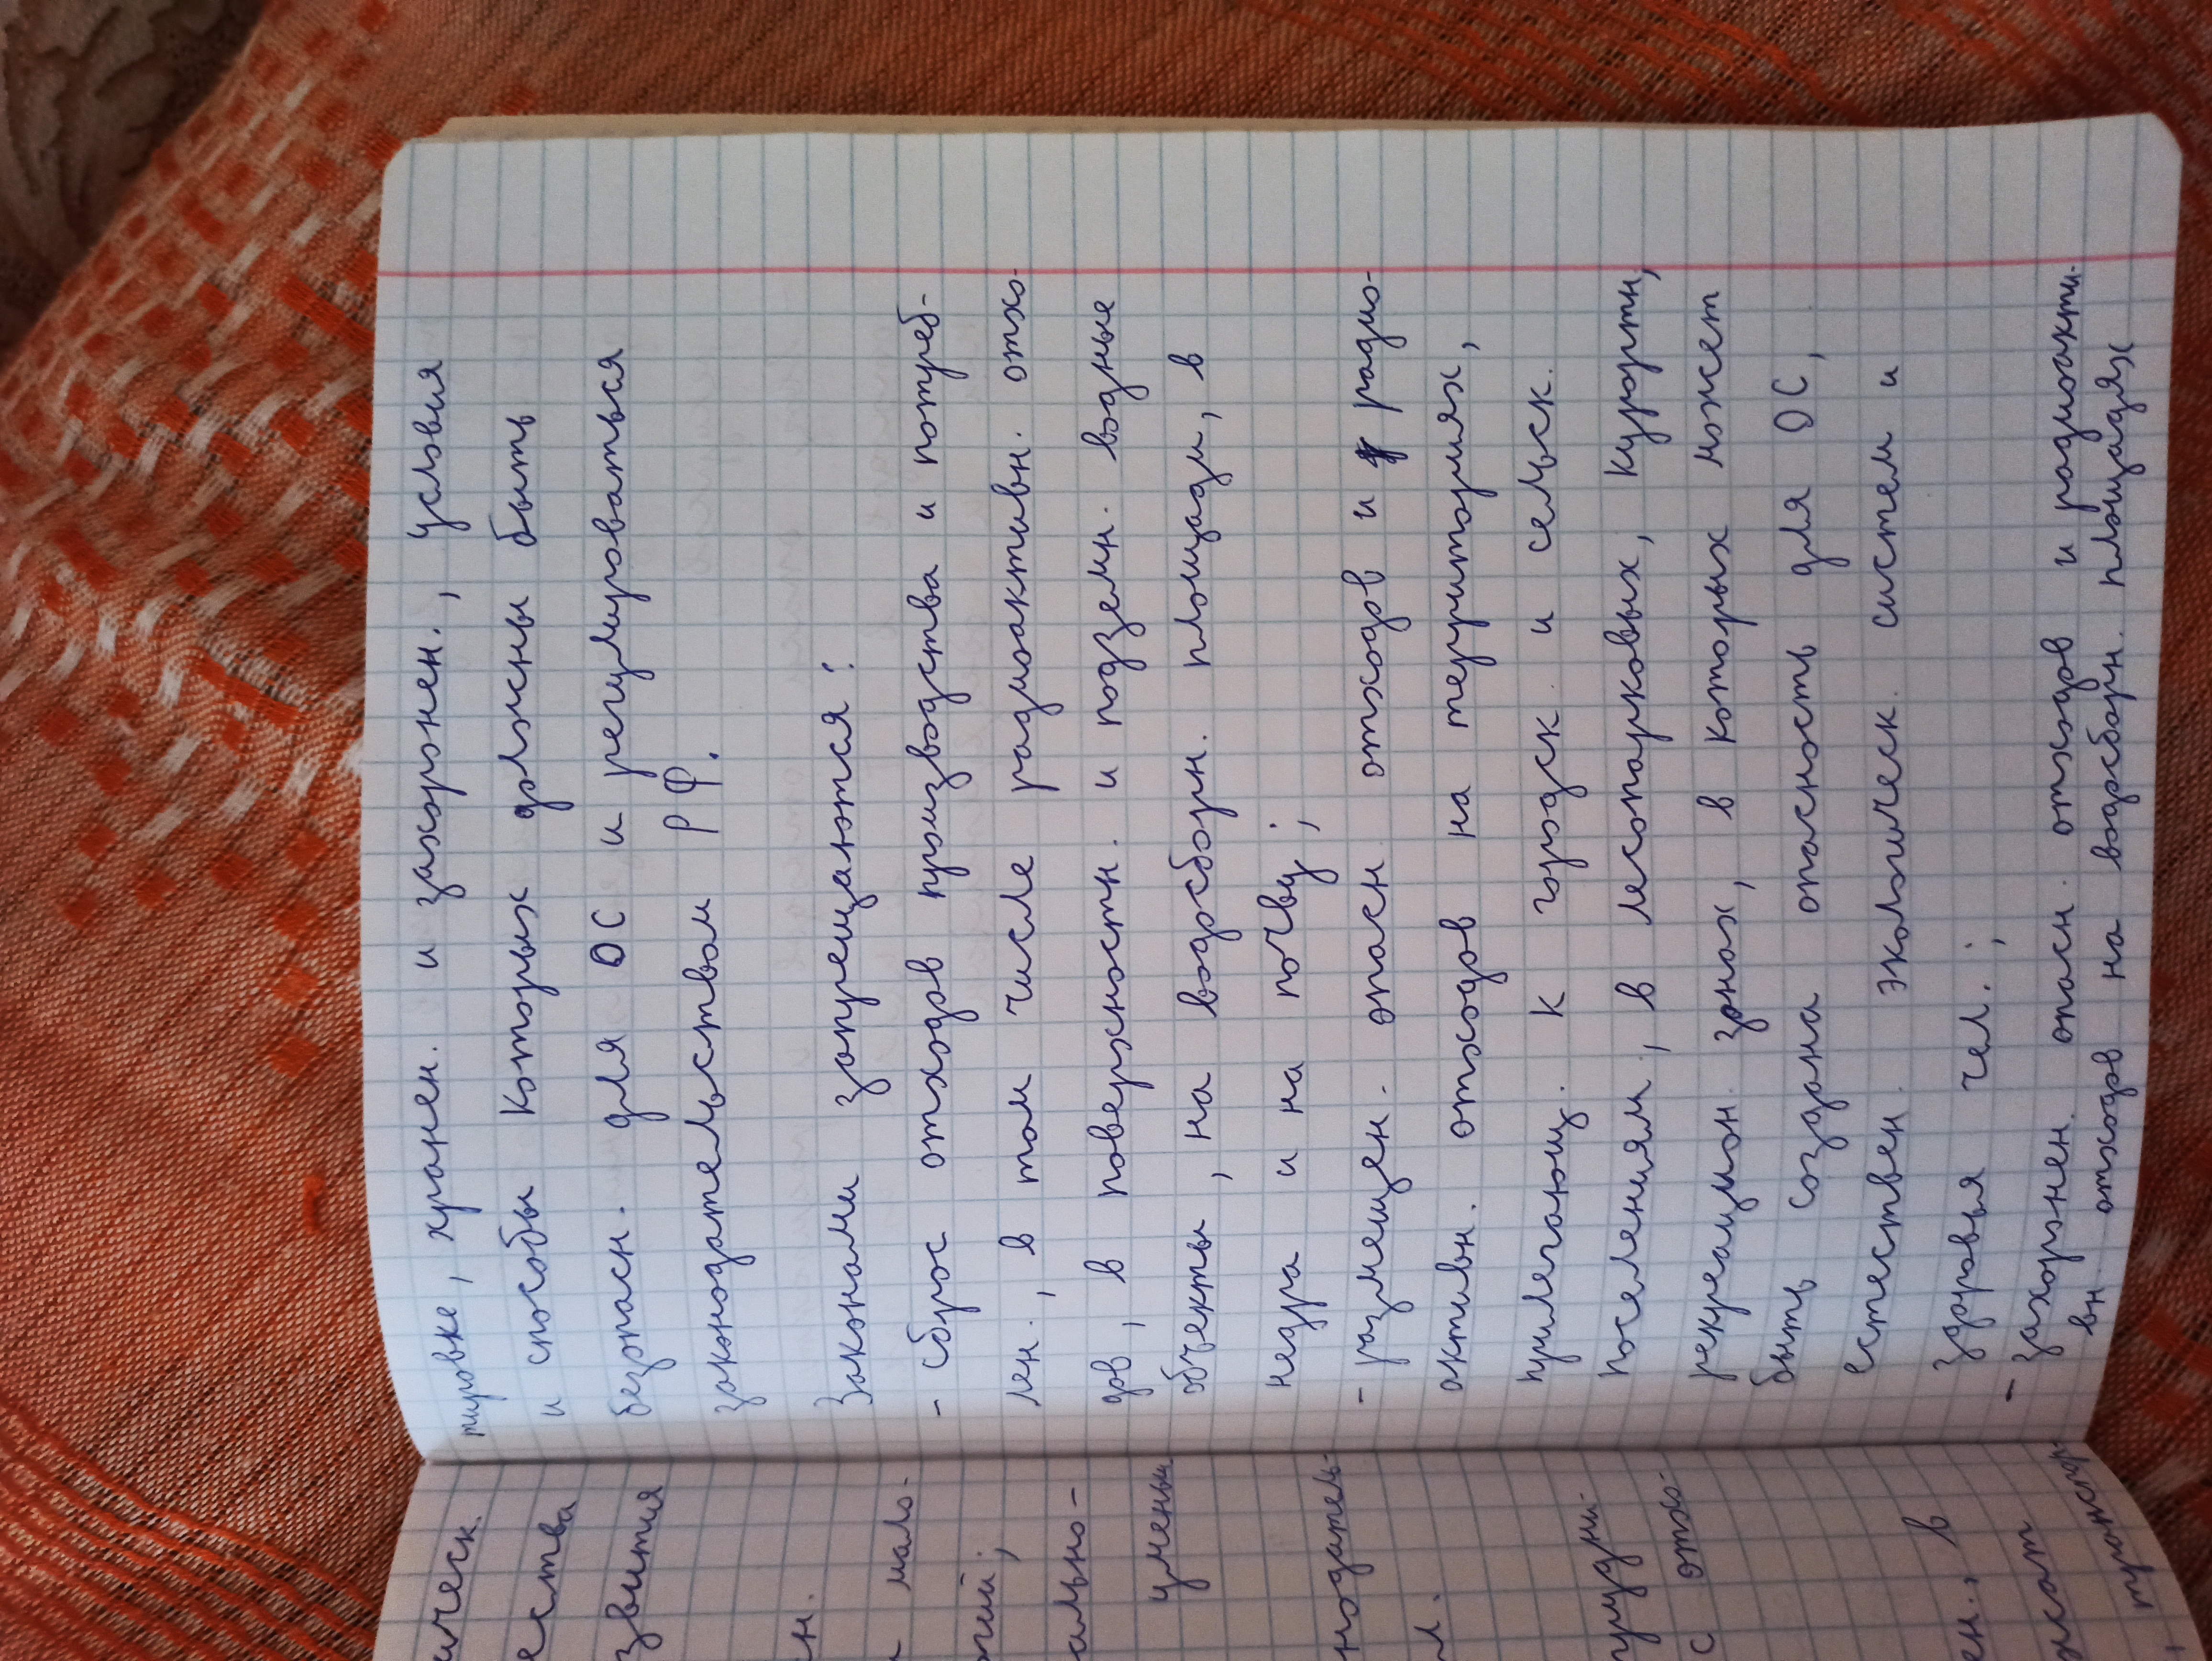 ическ.
ества
звития
н.
мало-
ний;
ально-
уменьш
нодатель-
л.
трудни-
с отхо-
ен., в
жат
транспор
тировке, хранен. и захоронен., условия
и способы которых должны быть
безопасн. для ОС и регулироваться
законодательством РФ.
Законами запрещаются:
- сброс отходов производства и потреб-
лен., в том числе радиоактивн. отхо-
дов, в поверхностн. и подземн. водные
объекты, на водосборн. площади, в
недра и на почву;
- размещен. опасн. отходов и радио-
активн. отходов на территориях,
прилегающ. к городск. и сельск.
поселениям, в лесопарковых, курортн,
рекреацион. зонах, в которых может
быть создана опасность для ОС,
естествен. экологическ. систем и
здоровья чел.;
- захоронен. опасн. отходов и радиоакти-
вн. отходов на водосборн. площадях